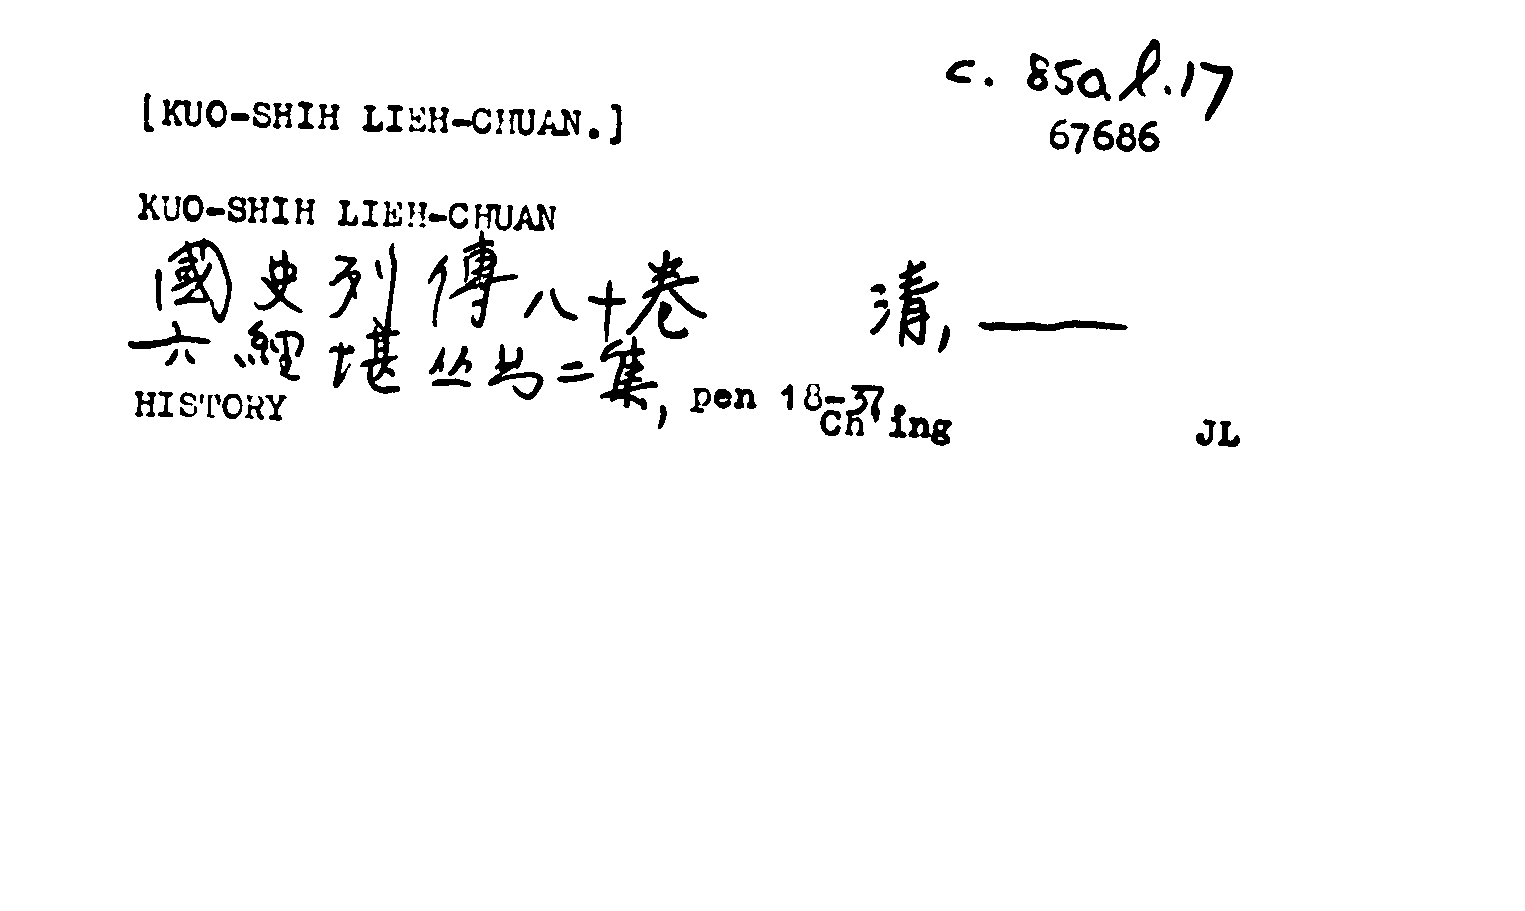 c. 85a l.17
[KUO-SHIH LIEH-CHUAN.]
67686
KUO-SHIH LIEH-CHUAN
國史列傳八十卷 清, ——
六經堪丛书二集, pen 18-37.
HISTORY Ch'ing JL